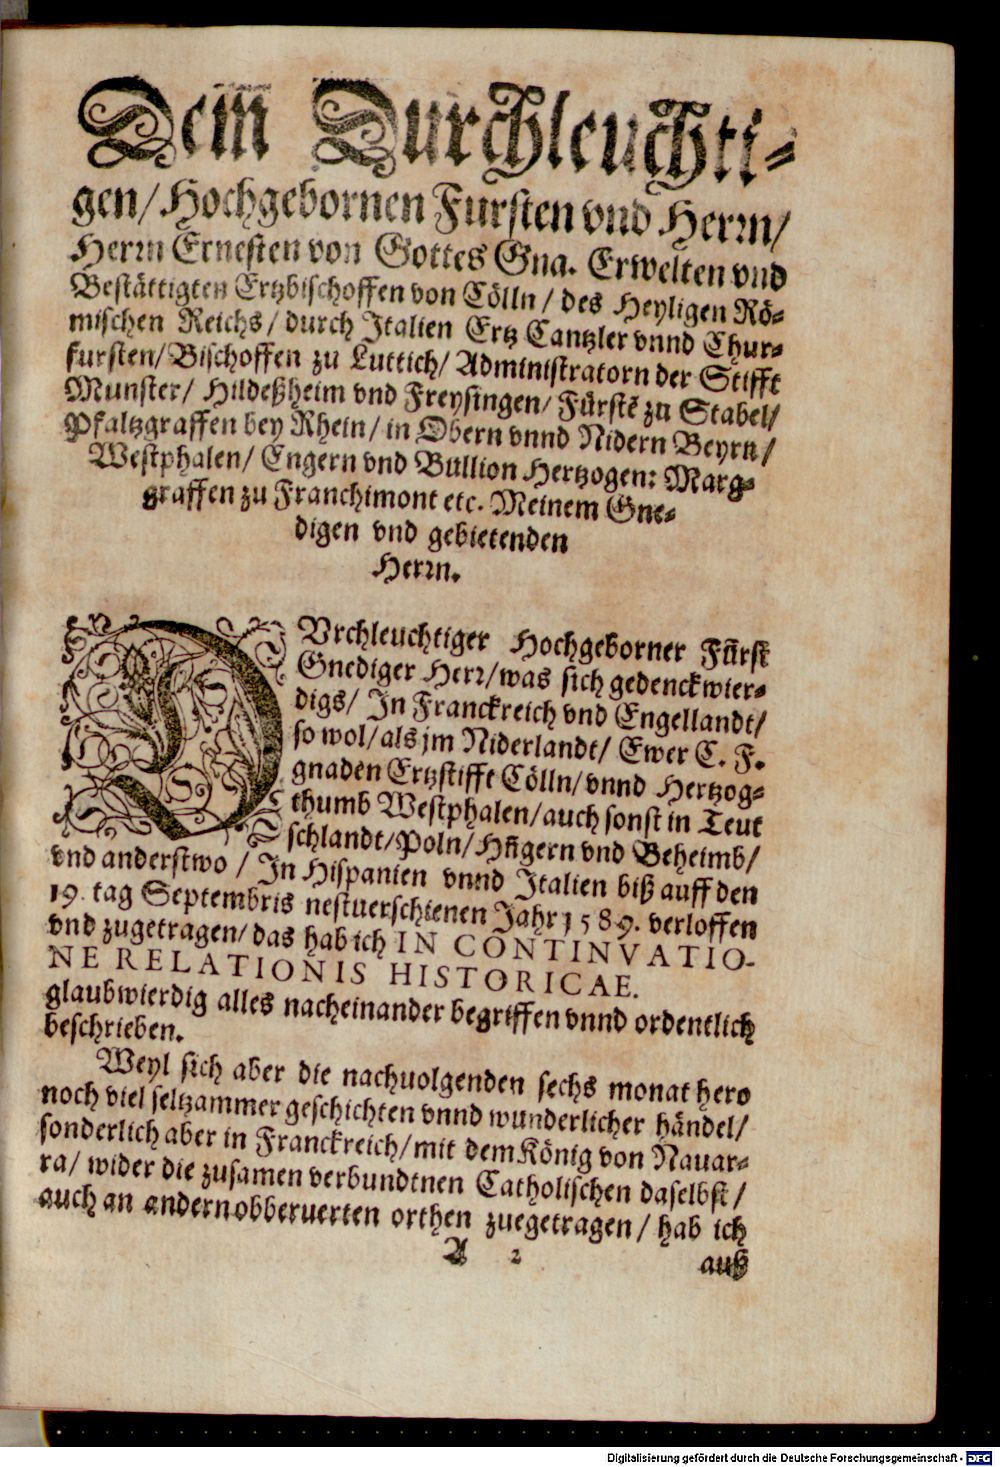 Dem Durchleuchti-
gen/ Hochgebornen Fursten vnd Herrn/
Herrn Ernesten von Gottes Gna. Erwelten vnd
Bestättigten Ertzbischoffen von Cölln/ des Heyligen Rö-
mischen Reichs/ durch Italien Ertz Cantzler vnnd Chur-
fursten/ Bischoffen zu Luttich/ Administratorn der Stifft
Munster/ Hildeßheim vnd Freysingen/ Fürstē zu Stabel/
Pfaltzgraffen bey Rhein/ in Obern vnnd Nidern Beyrn/
Westphalen/ Engern vnd Bullion Hertzogen: Marg-
graffen zu Franchimont etc. Meinem Gne-
digen vnd gebietenden
Herrn.
DVrchleuchtiger Hochgeborner Fürst
Gnediger Herr/ was sich gedenckwier-
digs/ In Franckreich vnd Engellandt/
so wol/ als jm Niderlandt/ Ewer C. F.
gnaden Ertzstifft Cölln/ vnnd Hertzog-
thumb Westphalen/ auch sonst in Teut
schlandt/ Poln/ Hñgern vnd Beheimb/
vnd anderstwo/ In Hispanien vnnd Italien biß auff den
19. tag Septembris nestuerschienen Jahr 1589. verloffen
vnd zugetragen/ das hab ich IN CONTINVATIO-
NE RELATIONIS HISTORICAE.
glaubwierdig alles nacheinander begriffen vnnd ordentlich
beschrieben.
Weyl sich aber die nachuolgenden sechs monat hero
noch viel seltzammer geschichten vnnd wunderlicher händel/
sonderlich aber in Franckreich/ mit dem König von Nauar-
ra/ wider die zusamen verbundtnen Catholischen daselbst/
auch an andern obberuerten orthen zuegetragen/ hab ich
A 2 auß
Digitalisierung gefördert durch die Deutsche Forschungsgemeinschaft - DFG